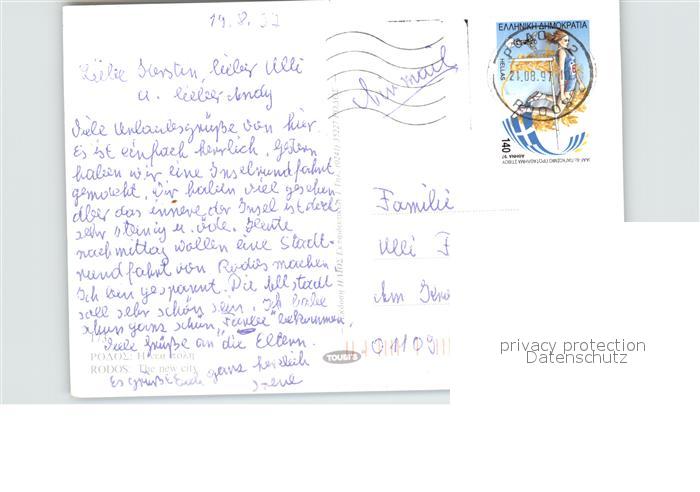 19.8.97
Liebe Kerstin, lieber Ulli
u. lieber Andy
Viele Urlaubsgrüße von hier.
Es ist einfach herrlich. Gestern
haben wir eine Inselrundfahrt
gemacht. Wir haben viel gesehen
Aber das innere der Insel ist doch
sehr steinig u. öde. Heute
nachmittag wollen eine Stadt-
rundfahrt von Rodos machen.
Ich bin gespannt. Die Altstadt
soll sehr schön sein. Ich habe
schon ganz schön "Farbe" bekommen.
Viele Grüße an die Eltern.
Es grüßt Euch ganz herzlich
Irene
ΡΟΔΟΣ: Η νέα πόλη
RODOS: The new city
TOUBI'S
Airmail
ΕΛΛΗΝΙΚΗ ΔΗΜΟΚΡΑΤΙΑ
HELLAS
21.08.97
140
ΑΘΗΝΑ '97
Familie
Ulli F
Am
01109
privacy protection
Datenschutz